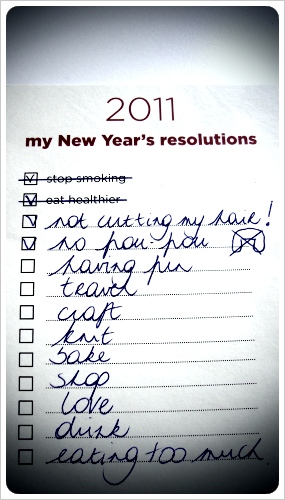 2011
my New Year's resolutions
stop smoking
eat healthier
not cutting my hair!
no pou-pou
having fun
travel
craft
knit
bake
shop
love
drink
eating too much